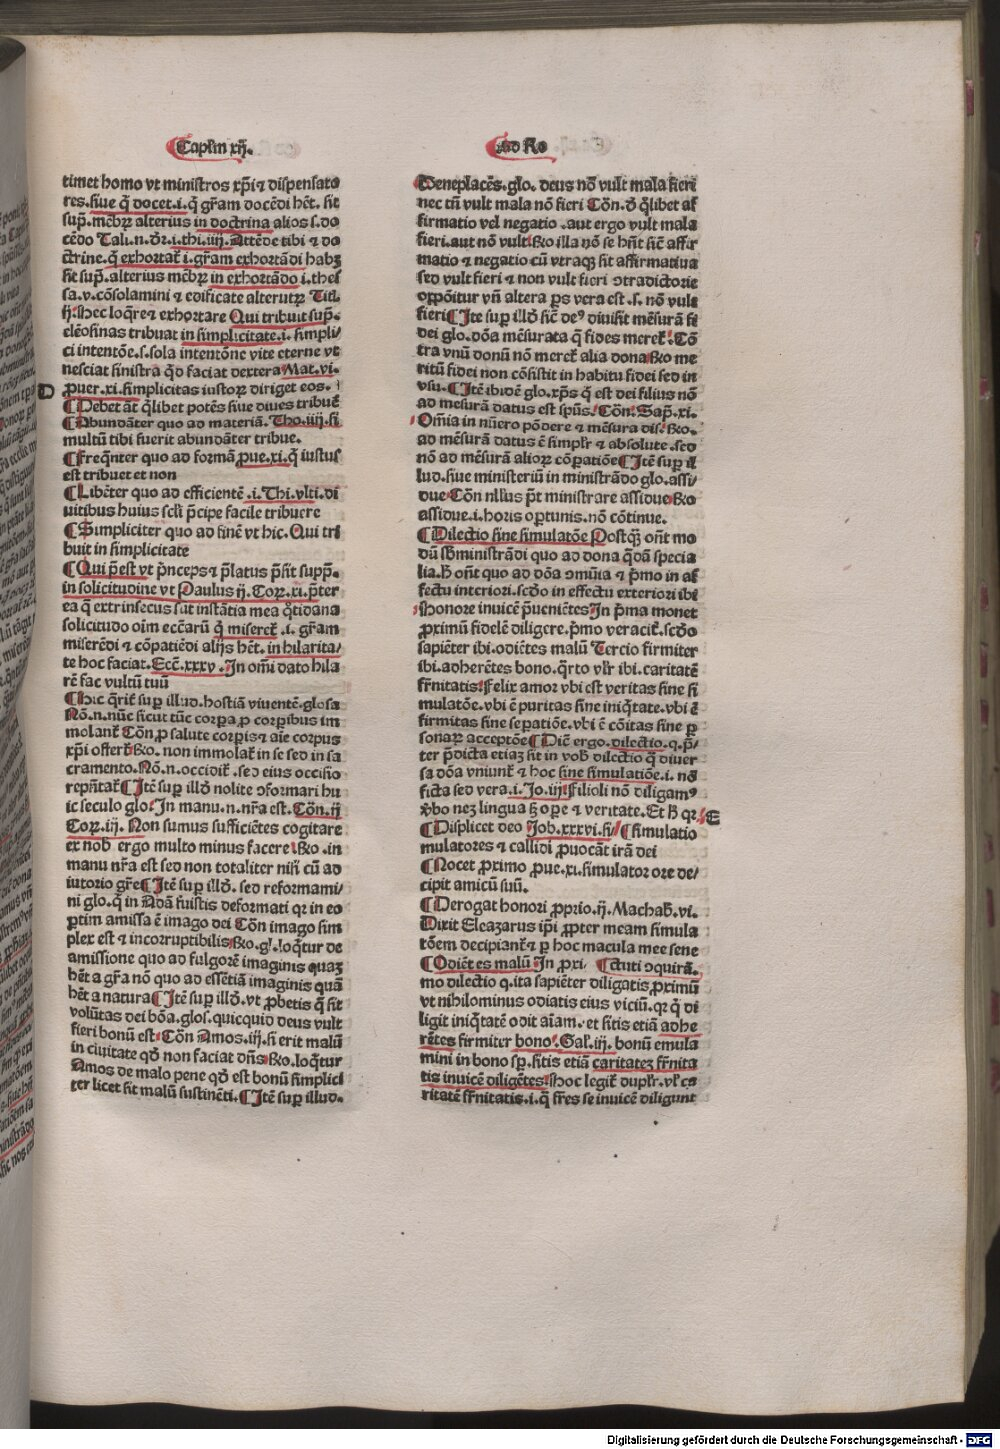 Caplm xij.
timet homo vt ministros xp̄i ⁊ dispensato
res. siue q̄ docet .i. q̄ gr̄am docēdi hēt. sit
sup̄. mēbrꝝ alterius in doctrina alios s. do
cēdo Tali. n. dr̄. i. thi. iiij. Attēde tibi ⁊ do
ctrine. q̄ exhortat᷑ i. gr̄am exhortādi habꝫ
sit sup̄. alterius mēbrꝝ in exhortādo i. thes
sa. v. cōsolamini ⁊ edificate alterutrꝝ Tit.
ij. hec loq̄re ⁊ exhortare Qui tribuit sup̄.
elēosinas tribuat in simplicitate .i. simpli/
ci intentōe. s. sola intentōne vite eterne vt
nesciat sinistra q̄d faciat dextera Mat. vi.
D ꝓuer. xi. simplicitas iustoꝝ diriget eos.
¶ Debet āt q̄libet potēs siue diues tribuē
¶ Abundāter quo ad materiā. Tho. iiij. si
multū tibi fuerit abundāter tribue.
¶ Freq̄nter quo ad formā ꝓue. xi. q̄ iustus
est tribuet et non
¶ Libēter quo ad efficientē .i. Thi. vlti. di
uitibus huius scl̄i p̄cipe facile tribuere
¶ Simpliciter quo ad finē vt hic. Qui tri
buit in simplicitate
¶ Qui p̄est vt p̄nceps ⁊ p̄latus p̄sit supp̄.
in solicitudine vt Paulus ij. Coꝝ. xi. p̄ter
ea q̄ extrinsecus sūt instātia mea q̄tidana
solicitudo oīm ecc̄arū q̄ miseret᷑ .i. gr̄am
miserēdi ⁊ cōpatiēdi alijs hēt. in hilarita/
te hoc faciat. Ecc̄. xxxv. In om̄i dato hila
rē fac vultū tuū
¶ Hic q̄rit᷑ sup̄ illud. hostiā viuentē. glosa
Nō. n. nūc sicut tūc corꝑa ꝓ corꝑibus im
molant᷑ Cōn̄ ꝓ salute corꝑis ⁊ aīe corpus
xp̄i offert᷑ Ro. non immolat᷑ in se sed in sa
cramento. Nō. n. occidit᷑. sed eius occisio
rep̄ntat᷑ ¶ Itē suꝑ illd̄ nolite ↄformari hu
ic seculo glo. In manu. n. nr̄a est. Cōn̄. ij
Coꝝ. iij. Non sumus sufficiētes cogitare
ex nob̄ ergo multo minus facere Ro. in
manu nr̄a est sed non totaliter nisi cū ad
iutorio gr̄e ¶ Itē suꝑ illd̄. sed reformami/
ni glo. q̄ in Adā fuistis deformati qꝛ in eo
ꝑtim amissa ē imago dei Cōn̄ imago sim
plex est ⁊ incorruptibilis Ro. gl. loq̄tur de
amissione quo ad fulgorē imaginis quaꝫ
hēt a gr̄a nō quo ad essētiā imaginis quā
hēt a natura ¶ Itē suꝑ illd̄. vt ꝓbetis q̄ sit
volūtas dei bōa. glos. quicquid deus vult
fieri bonū est Cōn̄ Amos. iij. si erit malū
in ciuitate qd̄ non faciat dn̄s Ro. loq̄tur
Amos de malo pene qd̄ est bonū simplici
ter licet sit malū sustinēti. ¶ Itē suꝑ illud.
Ad Ro
Beneplacēs. glo. deus nō vult mala fieri
nec tn̄ vult mala nō fieri Cōn̄. d̄ q̄libet af
firmatio vel negatio. aut ergo vult mala
fieri. aut nō vult Ro illa nō se hn̄t sic̄ affir
matio ⁊ negatio cū vtraqꝫ sit affirmatiua
sed vult fieri ⁊ non vult fieri ↄtradictorie
opponitur vn̄ altera ꝑs vera est .s. nō vult
fieri ¶ Ite suꝑ illd̄ sic̄ deꝰ diuisit mēsurā fi
dei glo. dōa mēsurata q̄ fides meret᷑. Cō
tra vnū donū nō meret᷑ alia dona Ro me
ritū fidei non cōsistit in habitu fidei sed in
vsu. ¶ Itē ibidē glo. xp̄s q̄ est dei filius nō
ad mēsurā datus est spūs. Cōn̄. Sap̄. xi.
Om̄ia in nūero pōdere ⁊ mēsura dis. Ro.
ad mēsurā datus ē simpl'r ⁊ absolute. sed
nō ad mēsurā alioꝝ cōꝑatiōe ¶ Itē suꝑ il
lud. siue ministeriū in ministrādo glo. assi/
due Cōn̄ nllus p̄t ministrare assidue Ro
assidue .i. horis oꝑtunis. nō cōtinue.
¶ Dilectio sine simulatōe Postqꝫ on̄t mo
dū sb̄ministrādi quo ad dona q̄dā specia
lia. h̄ on̄t quo ad dōa ↄmūia ⁊ p̄mo in af
fectu interiori. scd̄o in effectu exteriori ibi
Honore inuicē p̄ueniētes In p̄ma monet
ꝓximū fidelē diligere. p̄mo veracit᷑. scd̄o
sapiēter ibi. odiētes malū Tercio firmiter
ibi. adherētes bono. q̄rto vl'r ibi. caritatē
fr̄nitatis. Felix amor vbi est veritas sine si
mulatōe. vbi ē puritas sine iniq̄tate. vbi ē
firmitas sine seꝑatiōe. vbi ē cōitas sine ꝑ
sonaꝝ acceptōe ¶ Dic̄ ergo. dilectio. q. p̄/
ter p̄dicta etiaꝫ sit in vob̄ dilectio q̄ diuer
sa dōa vniunt᷑ ⁊ hoc sine simulatiōe .i. nō
ficta sed vera. i. Jo. iij. Filioli nō diligamꝰ
ꝟbo neꝫ lingua sꝫ oꝑe ⁊ veritate. Et h̄ qꝛ E
¶ Displicet deo Job. xxxvi. si/ ¶ simulatio
mulatores ⁊ callidi ꝓuocāt irā dei
¶ Nocet ꝓximo ꝓue. xi. simulator ore de/
cipit amicū suū.
¶ Derogat honori ꝓprio. ij. Machab̄. vi.
Dixit Eleazarus ip̄i ꝓpter meam simula
tōem decipiant᷑ ⁊ ꝑ hoc macula mee sene
¶ Odiēt es malū In ꝓxi/ ¶ ctuti ↄquirā.
mo dilectio q. ita sapiēter diligatis ꝓximū
vt nihilominus odiatis eius viciū. qꝛ q̄ di
ligit iniq̄tatē odit aīam. et sitis etiā adhe
rētes firmiter bono. Gal. iij. bonū emula
mini in bono sp̄. sitis etiā caritateꝫ fr̄nita
tis inuicē diligētes. hoc legit᷑ dupl'r. vl' ca
ritatē fr̄nitatis .i. q̄ fr̄es se inuicē diligunt
Digitalisierung gefördert durch die Deutsche Forschungsgemeinschaft - DFG